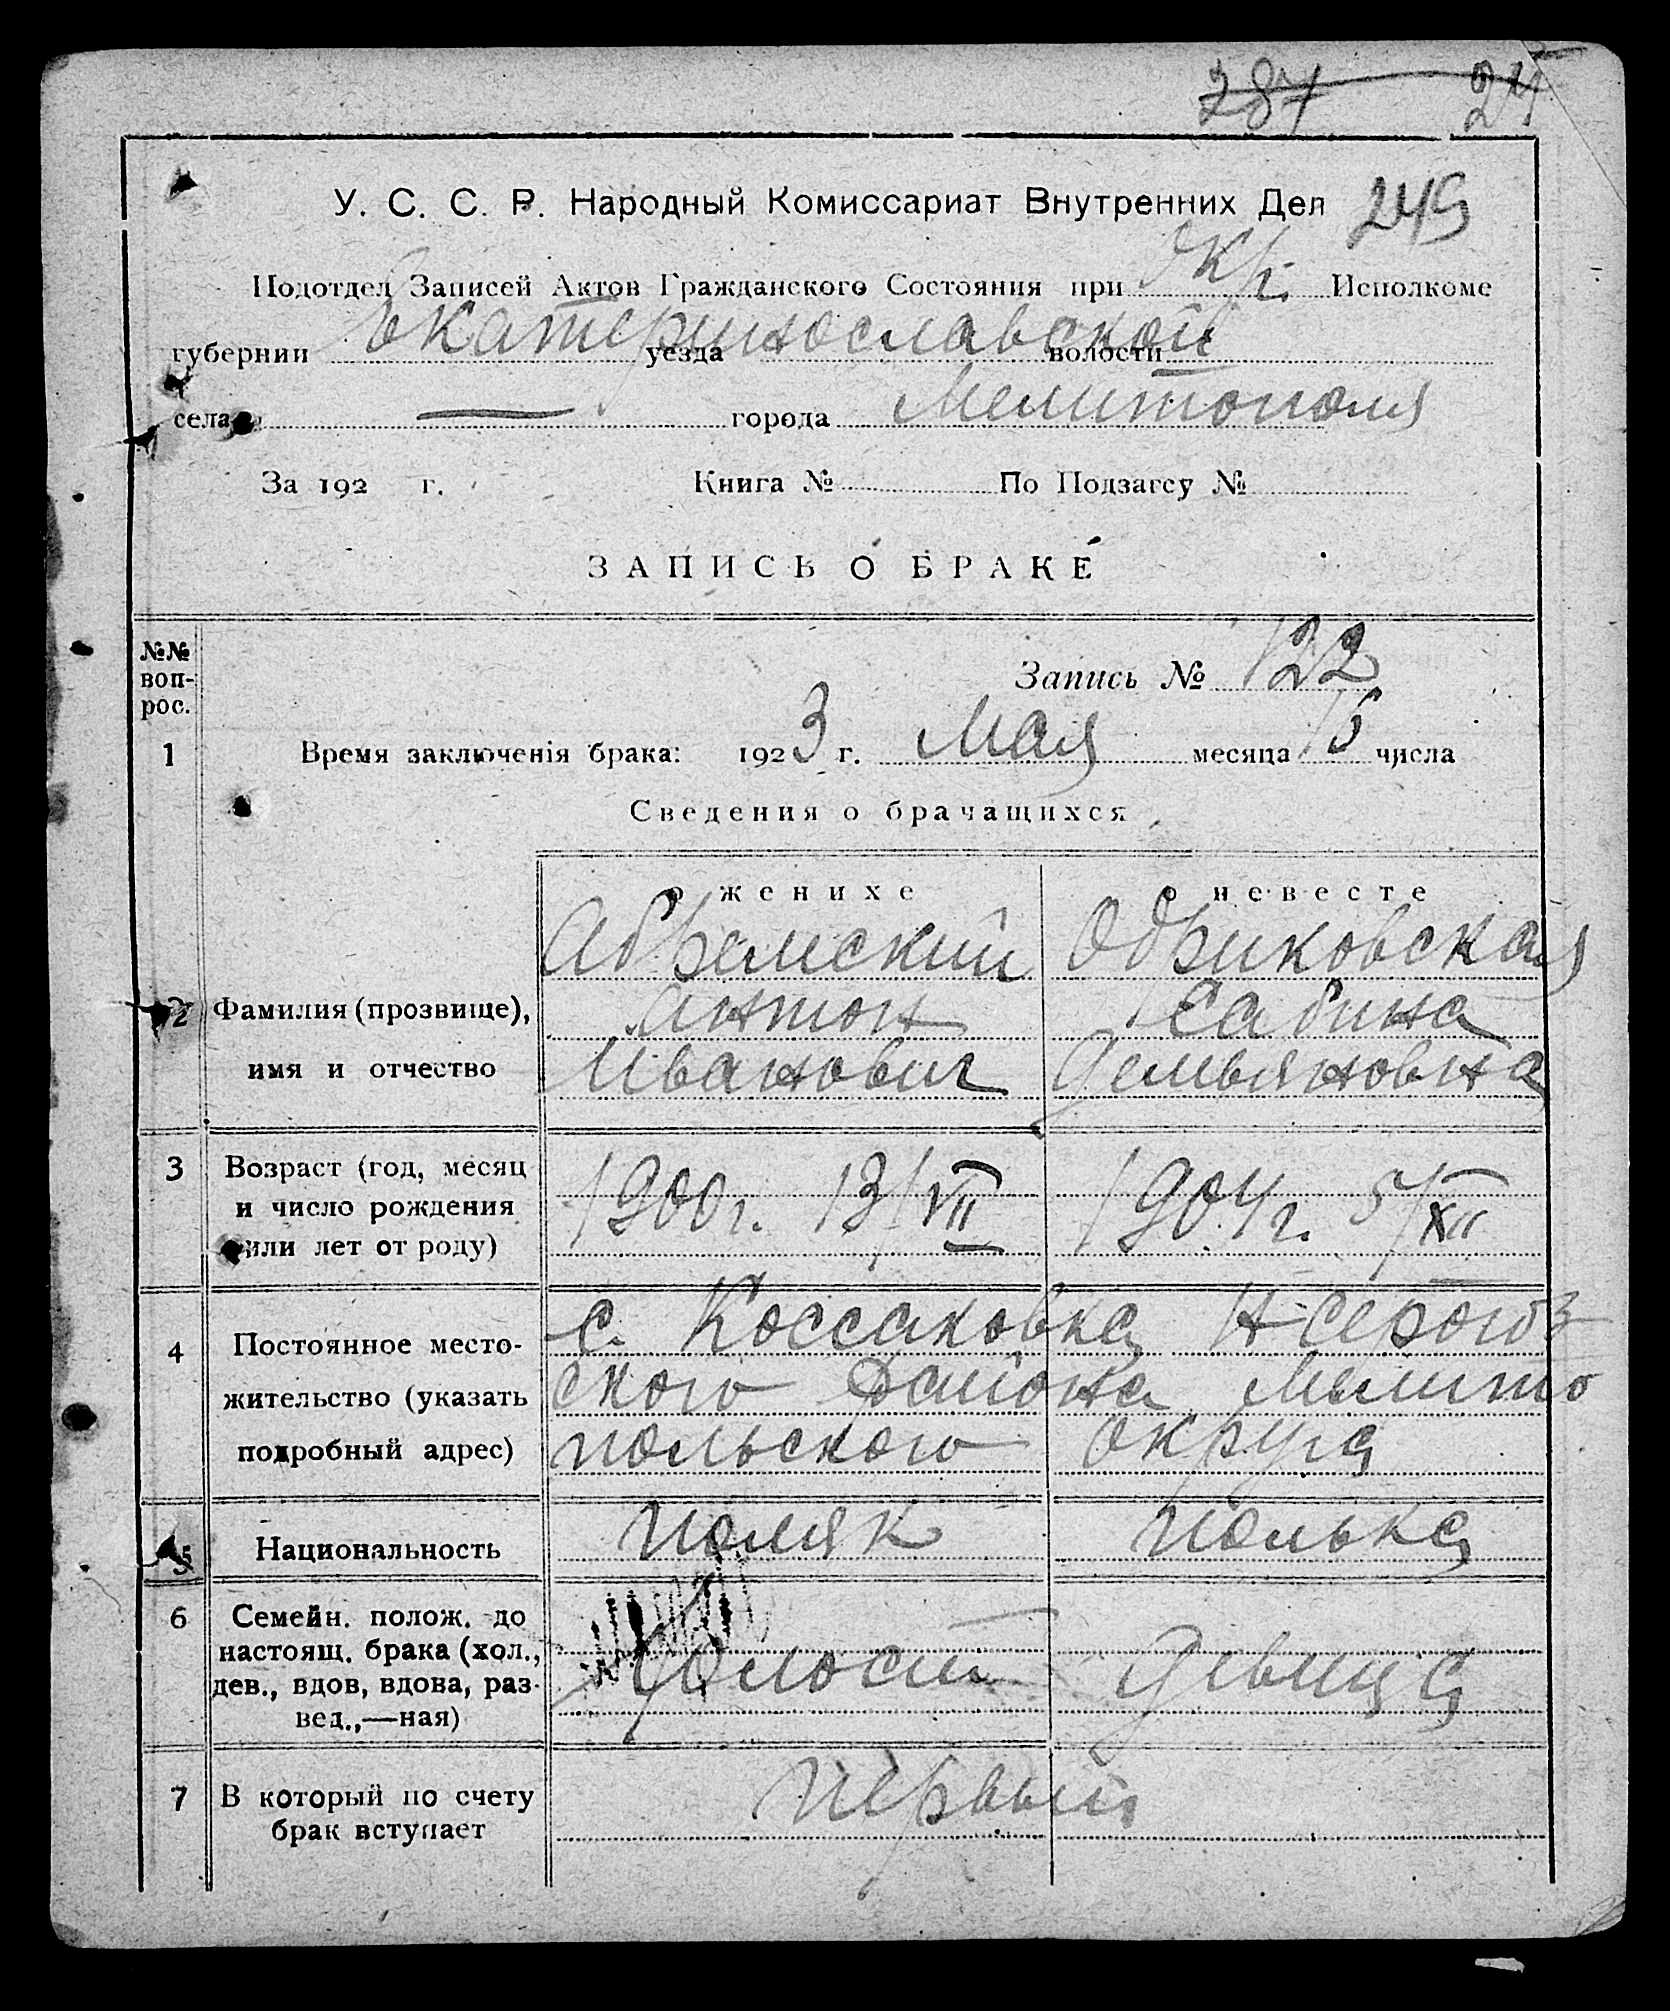 287 24
У. С. С. Р. Народный Комиссариат Внутренних Дел 249
Подотдел Записей Актов Гражданского Состояния при Окр. Исполкоме
губернии Екатеринославской уезда волости
села — города Мелитополя
За 192 г. Книга № По Подзагсу №
ЗАПИСЬ О БРАКЕ
№№ воп-рос.
Запись № 122
1 Время заключенія брака: 1923 г. Мая месяца 15 числа
Сведения о брачащихся
о женихе о невесте
Абремский Одриковская
2 Фамилия (прозвище), Антон Сабина
имя и отчество Иванович Демьяновна
3 Возраст (год, месяц
и число рождения 1900 г. 13/VII 1904 г. 5/XII
или лет от роду)
с. Коссаковка Н-Серогоз
4 Постоянное место-
жительство (указать ского района Мелито
подробный адрес) польского округа
5 Национальность поляк полька
6 Семейн. полож. до
настоящ. брака (хол.,
дев., вдов, вдова, раз- холост девица
вед.,—ная)
7 В который по счету первый
брак вступает